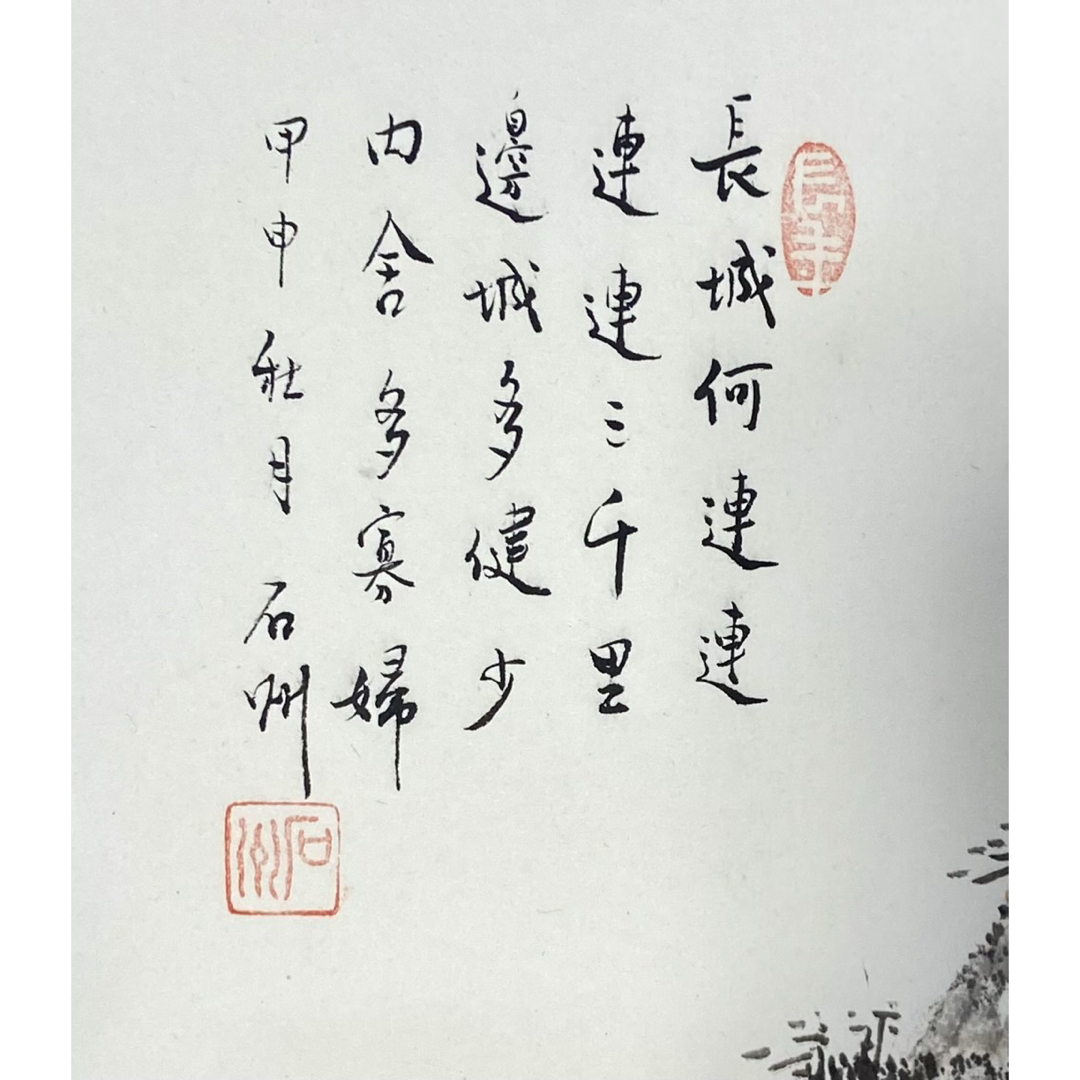 長城何連連
連連三千里
邊城多健少
內舍多寡婦
甲申秋月 石州
石州